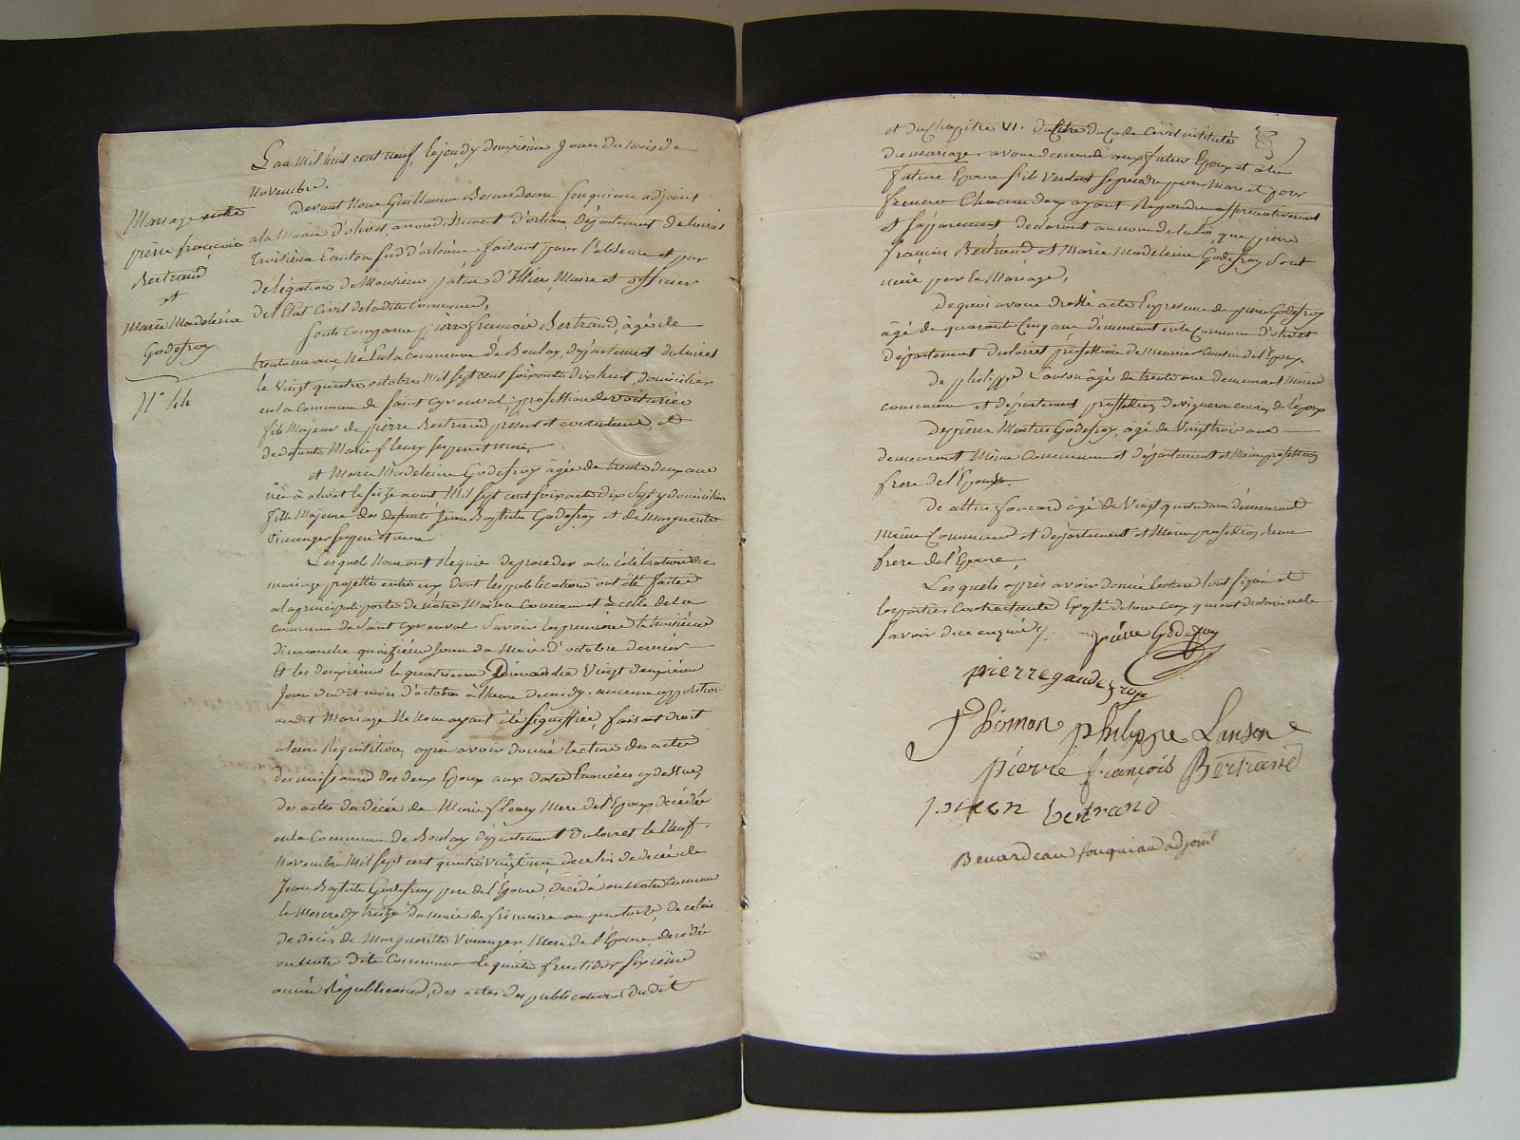 L'an mil huit cent neuf, le jeudy deuxième Jour du mois de
novembre.
Mariage entre
pierre françois
Bertrand
et
Marie Madeleine
Godefroy
N° 44
devant Nous Guillaume Beuardeau fouquiau adjoint
a la Mairie d'olivet, arrondissement d'orléans, Département du loiret
troisième Canton sud d'orléans, faisant pour l'absence et par
délégation de Monsieur Maire et officier
de l'Etat Civil de la dite Commune,
Sont Comparus pierre françois Bertrand, âgé de
trente un ans, Né en la commune de Boulay, département du loiret
le vingt quatre octobre Mil sept cent soixante dix huit, domicilié
en la Commune de saint cyr en val, profession de voiturier
fils Majeur de pierre Bertrand present et consentant, et
de defunte Marie fleury ses pere et mere,
et Marie Madeleine Godefroy âgée de trente deux ans
née à olivet le seize aout Mil sept cent soixante dix sept y domiciliée
fille Majeure des defunts Jean Baptiste Godefroy et de Marguerite
ses pere et mere
Lesquels Nous ont Requis de proceder a la célébration du
mariage projetté entre eux dont les publications ont été faites
a la principale porte de nôtre Maison Commune et à celle de la
commune de Saint cyr en val. Savoir les premières le troisième
dimanche quinzième Jour du Mois d'octobre dernier
Et les deuxièmes le quatrième Dimanche Vingt deuxième
Jour dudit mois d'octobre à l'heure de midy. aucune opposition
audit Mariage Ne Nous ayant été signiffiée, faisant droit
a leur Réquisition, apres avoir donné lecture des actes
de naissance des deux Epoux aux dates Enoncées cy dessus,
de acte de décès de Marie fleury Mere de l'Epoux décédée
en la Commune de Boulay département du loiret le Neuf
Novembre Mil sept cent quatre vingt un, de celui de décès de
Jean Baptiste Godefroy pere de l'Epouse, décédé en notre Commune
le Mercredy treize du mois de frimaire an quatorze, de celui
de décès de Marguerite Mere de l'Epouse décédée
en notre dite Commune le quatre fructidor sixième
année Républicaine, des actes de publications dudit
et du Chapitre VI. du titre du Code Civil intitulé
du mariage, avons demandé aux futurs Epoux et à la
future Epouse s'ils veulent se prendre pour Mari et pour
femme Chacun deux ayant Repondu affirmativement
et séparement declarons au nom de la loi, que pierre
françois Bertrand et Marie Madeleine Godefroy sont
unis par le Mariage,
De quoi avons dressé acte En presence de pierre Godefroy
âgé de quarante Cinq ans demeurant en la Commune d'olivet
département du loiret proffession de Meunier Cousin de l'Epouse
De philippe Lanson âgé de trente ans demeurant même
commune et département proffession de vigneron cousin de l'epoux
De pierre Godefroy, âgé de Vingt trois ans
demeurant Même Commune et département et Même proffession
frere de l'Epouse.
De âgé de Vingt quatre ans demeurant
même Commune et département et Même profession beau
frere de l'Epouse,
Lesquels après avoir donné lecture l'ont signé et
les parties Contractantes Excepté de tous Ceux qui ont declaré ne le
savoir de ce enquis,
pierre Godefroy
pierre
Thomon philippe Lanson
pierre françois Bertrand
bertrand
Beuardeau fouquiau adjoint